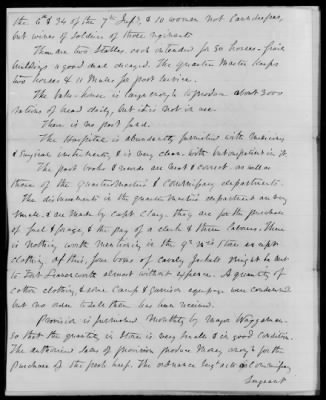 the 6th & 34 of the 7th Inft, & 10 women not Laundresses,
but wives of Soldiers of those regiments
There are two Stables each intended for 50 horses - frail
buildings & good deal decayed. The Quarter Master keeps
two horses & 11 Mules for post service.
The bake-house is large enough to produce about 3000
rations of bread daily, but is not in use.
There is no post fund.
The Hospital is abundantly furnished with medicines
& surgical instruments, & is very clean, with but one patient in it.
The post books & records are neat & correct, as well as
those of the Quarter Master's & Commissary departments.
The disbursements in the quarter master's department are very
small, & are made by Capt Clary. They are for the purchase
of fuel & forage, & the pay of a clerk & three laborers. There
is nothing worth mentioning in the Qr Mrs Store except
clothing. Of this, four boxes of Cavalry Jackets might be sent
to Fort Leavenworth almost without expense. A quantity of
cotton clothing & some Camp & garrison equipage were condemned
but no order to sell them has been received.
Provision is furnished Monthly by Major Waggaman.
so that the quantity in Store is very small & in good condition.
The authorized sales of provision produce money enough for the
purchase of the fresh beef. The ordnance Sergt acts as Commissary
Sergeant